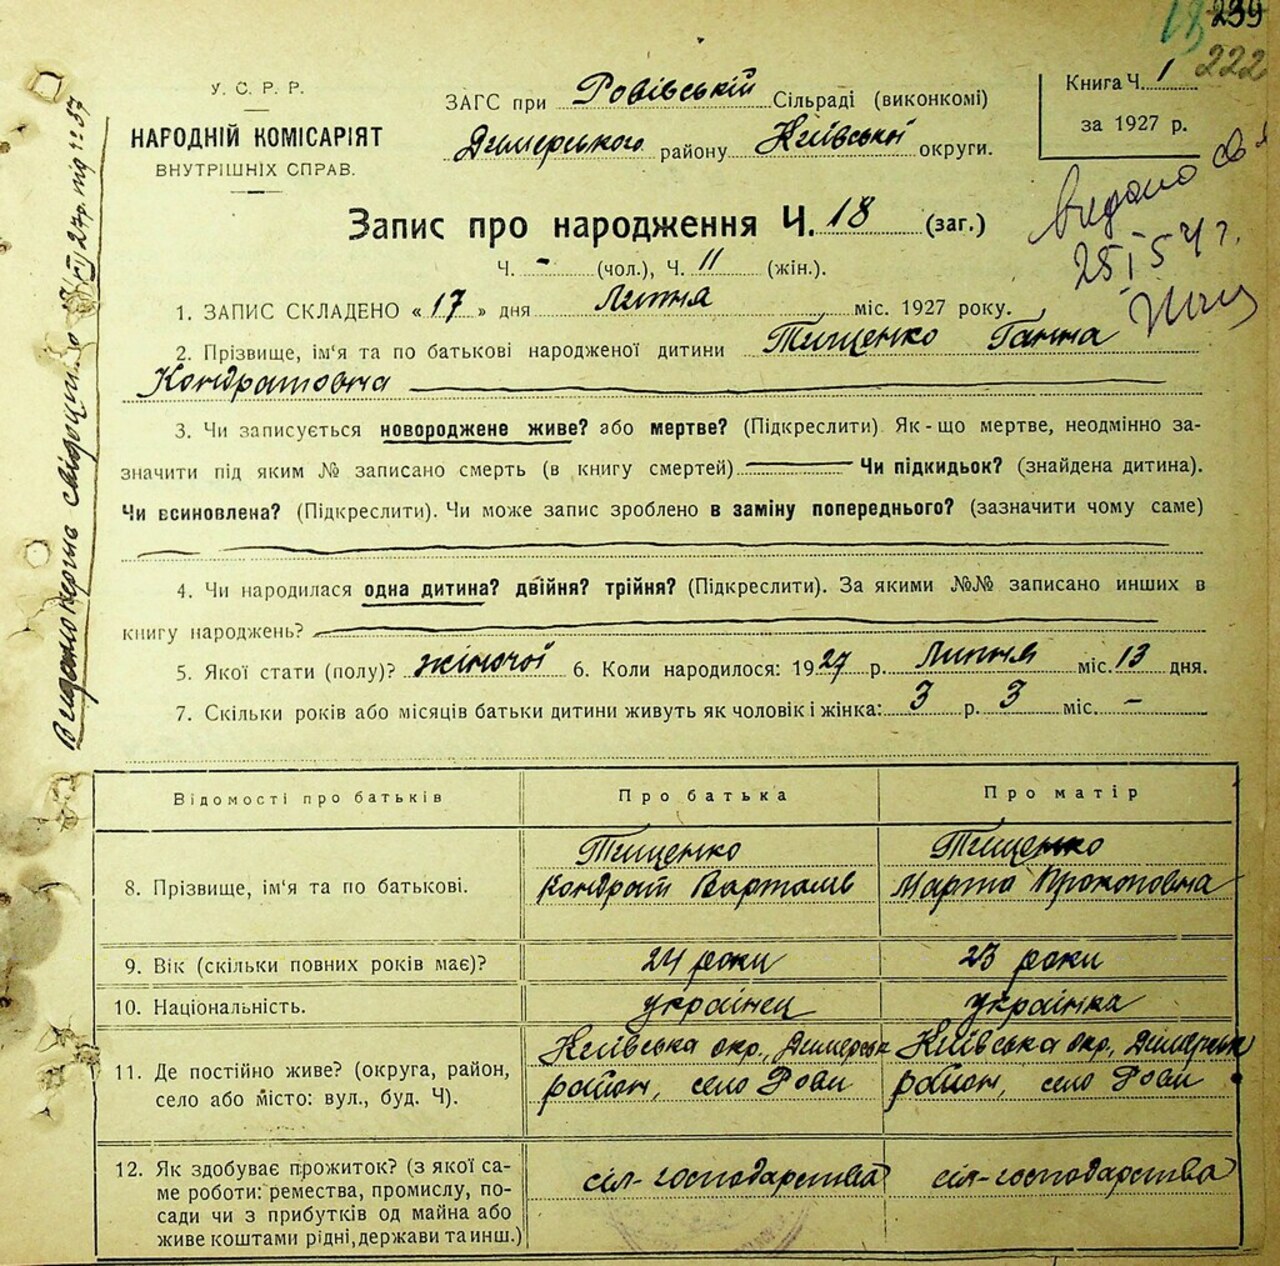 239
222
У. С. Р. Р.
НАРОДНІЙ КОМІСАРІЯТ
ВНУТРІШНІХ СПРАВ.
ЗАГС при Ровівській Сільраді (виконкомі)
Димерського району Київської округи.
Книга Ч. 1
за 1927 р.
видано св
25 I 54 г.
Запис про народження Ч. 18 (заг.)
Ч. - (чол.), Ч. 11 (жін.).
1. ЗАПИС СКЛАДЕНО «17» дня Липня міс. 1927 року.
2. Прізвище, ім'я та по батькові народженої дитини Тищенко Ганна
Кондратовна
3. Чи записується новороджене живе? або мертве? (Підкреслити) Як-що мертве, неодмінно за-
значити під яким № записано смерть (в книгу смертей) Чи підкидьок? (знайдена дитина).
Чи всиновлена? (Підкреслити). Чи може запис зроблено в заміну попереднього? (зазначити чому саме)
4. Чи народилася одна дитина? двійня? трійня? (Підкреслити). За якими №№ записано инших в
книгу народжень?
5. Якої стати (полу)? жіночої 6. Коли народилося: 1927 р. Липня міс. 13 дня.
7. Скільки років або місяців батьки дитини живуть як чоловік і жінка: 3 р. 3 міс. -
Відомості про батьків Про батька Про матір
8. Прізвище, ім'я та по батькові.
Тищенко
Кондрат Вартолив
Тищенко
Марта Прокоповна
9. Вік (скільки повних років має)? 24 роки 23 роки
10. Національність. українец українка
11. Де постійно живе? (округа, район,
село або місто: вул., буд. Ч).
Київська окр., Димерськ
район, село Рови
Київська окр., Димерськ
район, село Рови
12. Як здобуває прожиток? (з якої са-
ме роботи: ремества, промислу, по-
сади чи з прибутків од майна або
живе коштами рідні, держави та инш.)
сіл-господарства
сіл-господарства